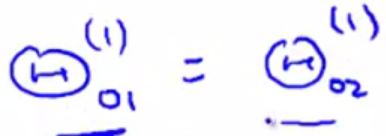 Θ₀₁⁽¹⁾ = Θ₀₂⁽¹⁾